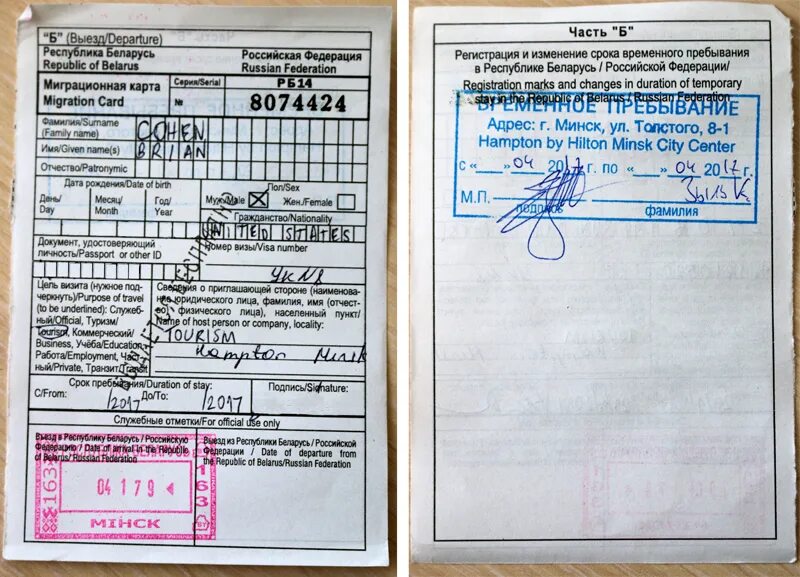 "Б" (Выезд/Departure)
Республика Беларусь
Republic of Belarus
Российская Федерация
Russian Federation
Миграционная карта
Migration Card
Серия/Serial
РБ14
№
8074424
Фамилия/Surname
(Family name)
COHEN
Имя/Given name(s)
BRIAN
Отчество/Patronymic
Дата рождения/Date of birth
День/
Day
Месяц/
Month
Год/
Year
Пол/Sex
Муж/Male
Жен/Female
Гражданство/Nationality
UNITED STATES
Документ, удостоверяющий
личность/Passport or other ID
номер визы/Visa number
Цель визита (нужное под
черкнуть)/Purpose of travel
(to be underlined): Служеб-
ный/Official, Туризм/
Tourism, Коммерческий/
Business, Учёба/Education,
Работа/Employment, Част-
ный/Private, Транзит/Transit
Сведения о приглашающей стороне (наименова-
ние юридического лица, фамилия, имя (отчест-
во) физического лица), населенный пункт/
Name of host person or company, locality:
TOURISM
Hampton Minsk
Срок пребывания/Duration of stay:
С/From:
/2017
До/To:
/2017
Подпись/Signature:
Служебные отметки/For official use only
Въезд в Республику Беларусь / Российскую
Федерацию / Date of arrival in the Republic
of Belarus/ Russian Federation
Выезд из Республики Беларусь / Российской
Федерации / Date of departure from
the Republic of Belarus/Russian Federation
163
04 1 7 9
163
BY
МІНСК
Часть "Б"
Регистрация и изменение срока временного пребывания
в Республике Беларусь / Российской Федерации/
Registration marks and changes in duration of temporary
stay in the Republic of Belarus / Russian Federation
ВРЕМЕННОЕ ПРЕБЫВАНИЕ
Адрес: г. Минск, ул. Толстого, 8-1
Hampton by Hilton Minsk City Center
с «___» 04 2017 г. по «___» 04 2017 г.
М.П.
подпись
фамилия